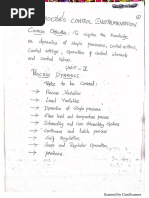 PROCESS CONTROL INSTRUMENTATION
Course Objective: To acquire the knowledge
on dynamics of simple processes, control actions,
control settings, operation of control elements
and control valves.
UNIT - I
PROCESS DYNAMICS
Topics to be Covered:
→ Process Variables
→ Load Variables
→ Dynamics of simple processes
→ flow level and temperature process
→ Interacting and non-Interacting Systems
→ Continuous and batch process
→ Self regulation
→ Servo and Regulator Operation
problems.
Scanned by CamScanner